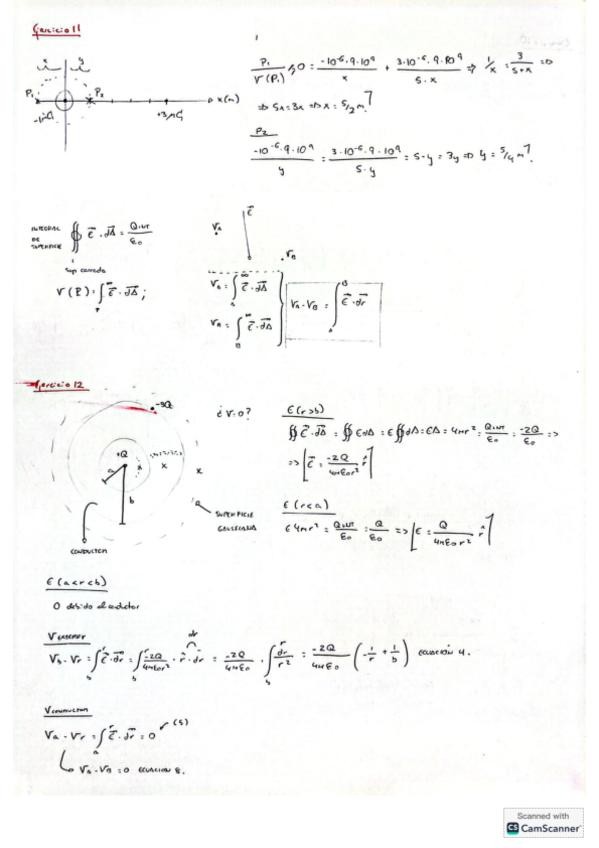 Ejercicio 11
x y
P₁ P₂ x(m)
-1μC +3μC
P₁
V(P₁) = 0 = -10⁻⁶·9·10⁹/x + 3·10⁻⁶·9·10⁹/5+x => 1/x = 3/5+x =>
=> 5x=3x => x = 5/2 m
P₂
-10⁻⁶·9·10⁹/y = 3·10⁻⁶·9·10⁹/5-y = 5-y = 3y => y = 5/4 m
INTEGRAL DE SUPERFICIE ∯ E · dA = Q INT/ε₀
Sup cerrada
V(P) = ∫ E · dA ;
E
VA
VB
VA = ∫ E · dA
VB = ∫ E · dA
VA - VB = ∫ E · dr
Ejercicio 12
-3Q
+Q
a
b
x
CONDUCTOR
SUPERFICIE GAUSSIANA
¿V=0?
E(r>b)
∯ E · dA = ∯ E dA = E ∯ dA = EA = 4πr² = Q INT/ε₀ = -2Q/ε₀ =>
=> E = -2Q/4πε₀r² r̂
E(r<a)
E 4πr² = Q INT/ε₀ = Q/ε₀ => E = Q/4πε₀r² r̂
E(a<r<b)
0 debido al conductor
V EXTERIOR
Vb - Vr = ∫ E · dr = ∫ -2Q/4πε₀r² · r̂ · dr = -2Q/4πε₀ · ∫ dr/r² = -2Q/4πε₀ (-1/r + 1/b) ECUACIÓN 4.
V CONDUCTOR
Va - Vr = ∫ E · dr = 0 (5)
Va - Vb = 0 ECUACION 8.
Scanned with
CS CamScanner